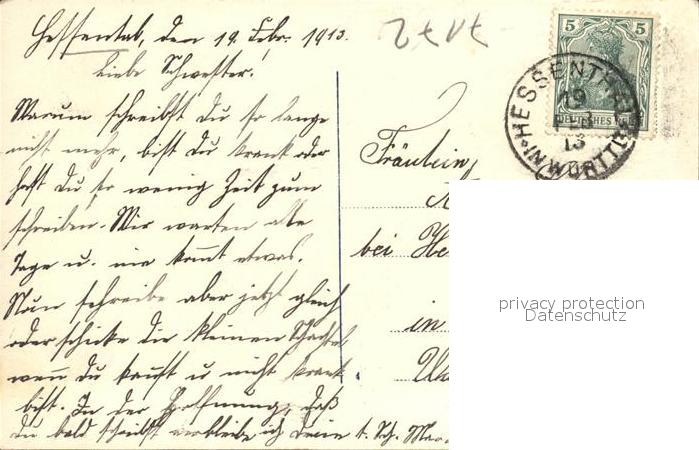 Hessental, den 19. Febr. 1913.
Liebe Schwester.
Warum schreibst Du so lange
nicht mehr, bist Du krank oder
hast Du so wenig Zeit zum
schreiben. Wir warten alle
Tage u. nie kommt etwas.
Nun schreibe aber jetzt gleich
oder schicke die kleinen Schachtel
wenn Du kannst u nicht krank
bist. In der Hoffnung, daß
Du bald schreibst verbleibe ich Deine l. Sch. Mar
2717
5 5
DEUTSCHES
HESSENTHAL
19
13
IN WÜRTT.
Fräulein
bei He
in
privacy protection
Datenschutz